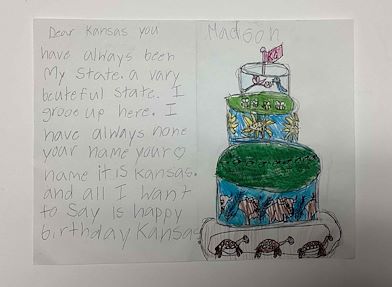 Dear Kansas you
have always been
My State. a vary
beuteful state. I
grooe up here. I
have always none
your name your
name it is kansas.
and all I want
to Say Is happy
birthday Kansas
Madson
KS